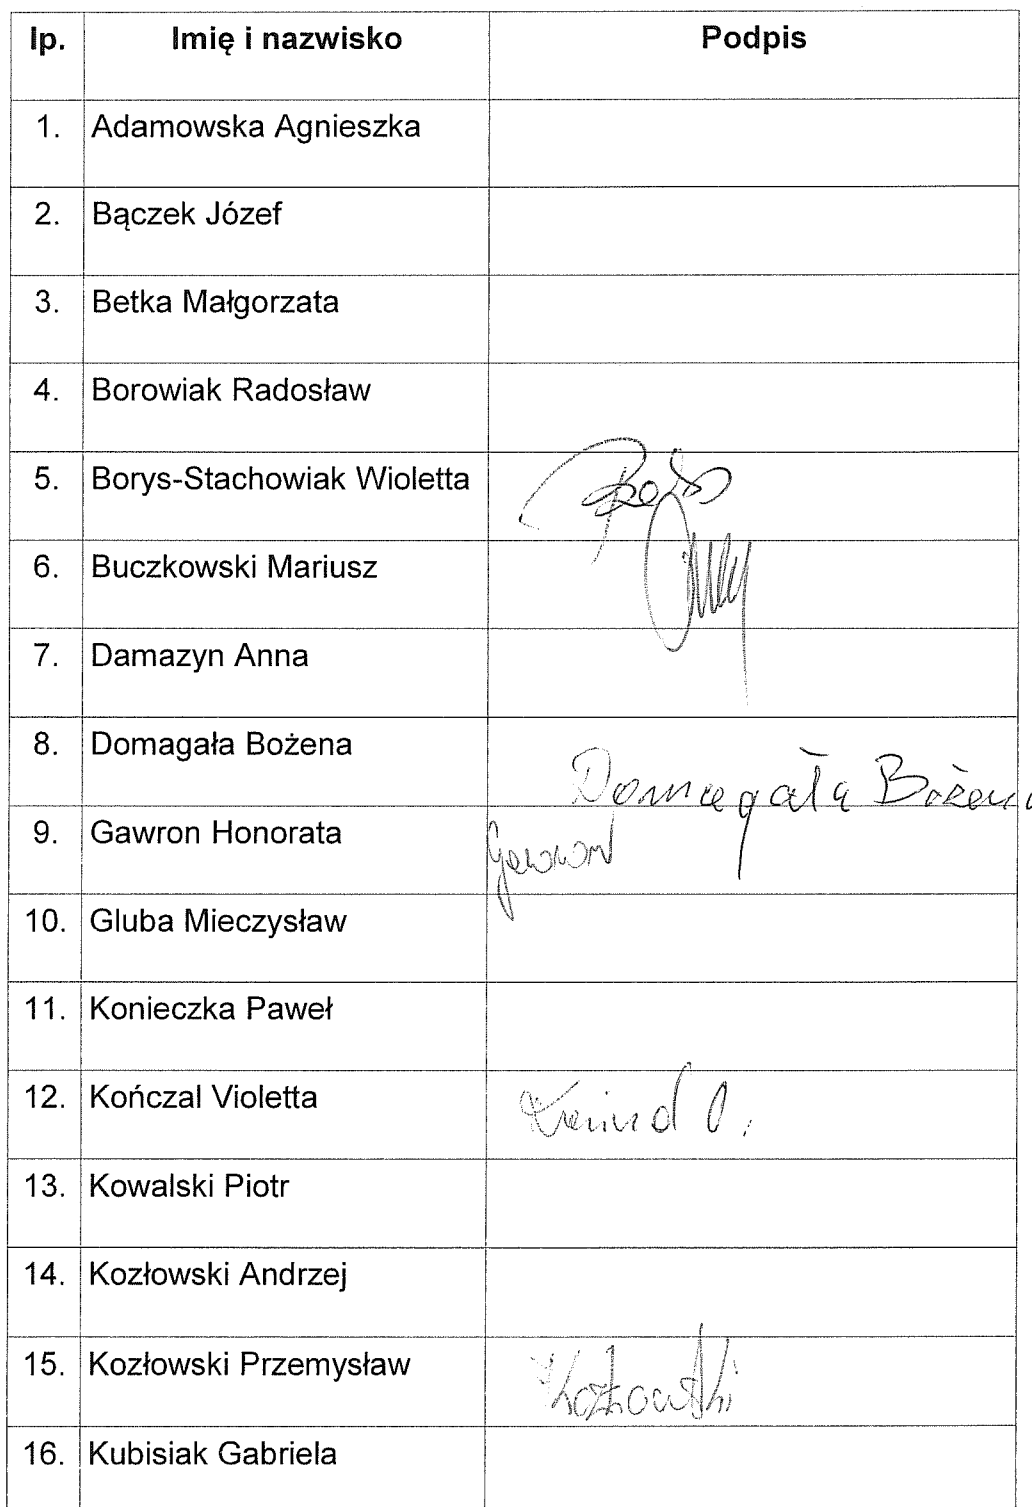 lp. Imię i nazwisko Podpis
1. Adamowska Agnieszka
2. Bączek Józef
3. Betka Małgorzata
4. Borowiak Radosław
5. Borys-Stachowiak Wioletta
6. Buczkowski Mariusz
7. Damazyn Anna
8. Domagała Bożena Domagała Bożena
9. Gawron Honorata Gawron
10. Gluba Mieczysław
11. Konieczka Paweł
12. Kończal Violetta
13. Kowalski Piotr
14. Kozłowski Andrzej
15. Kozłowski Przemysław Kozłowski
16. Kubisiak Gabriela